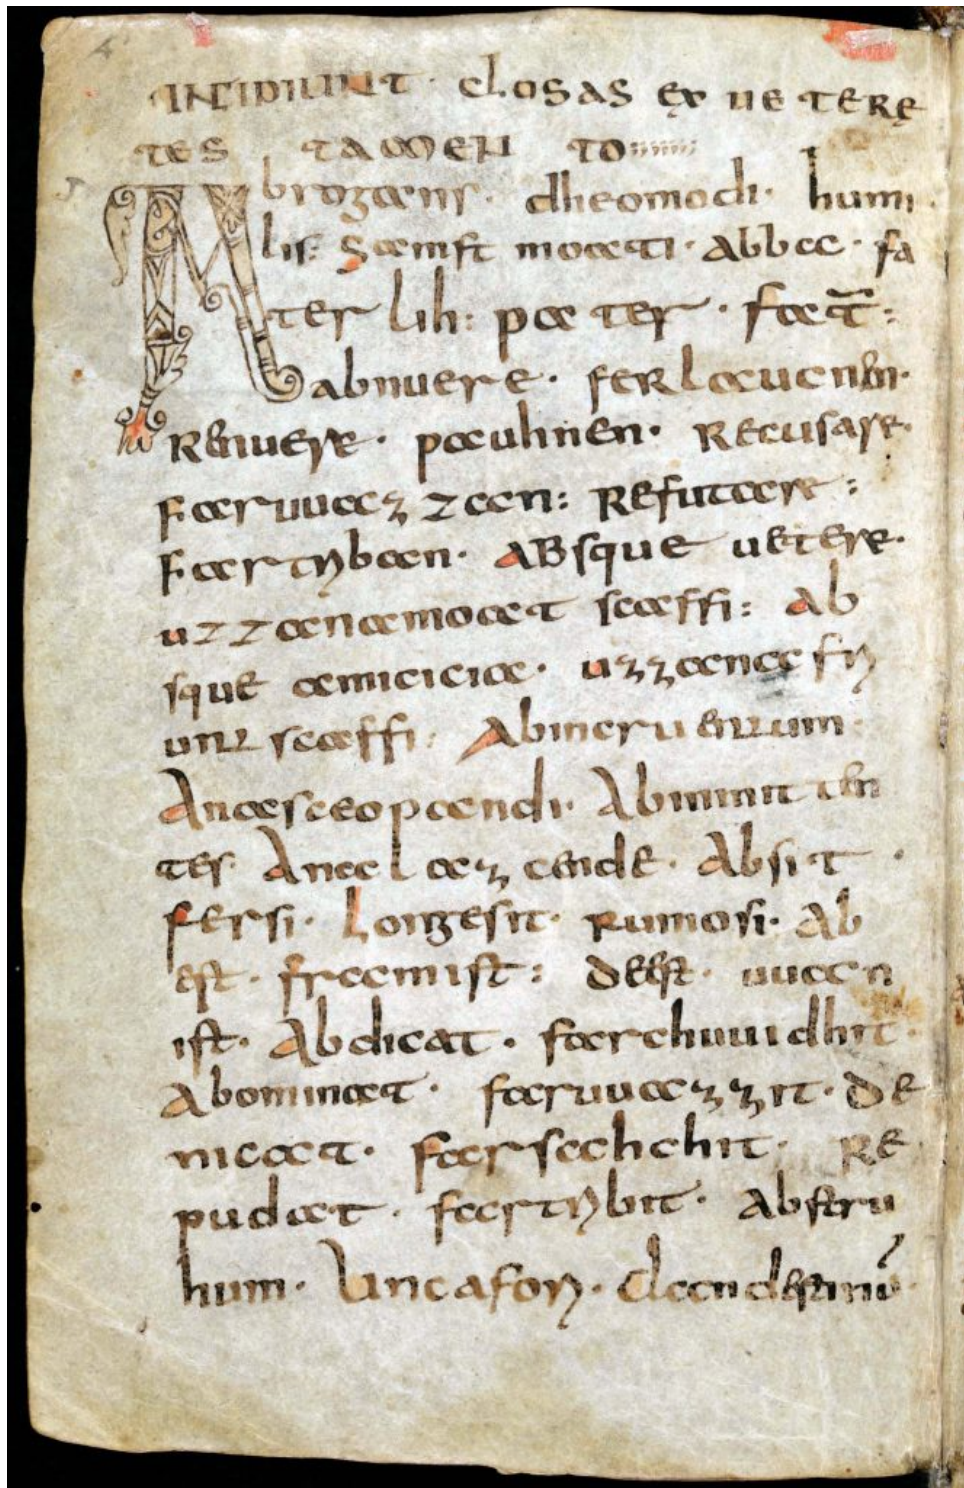 INCIPIUNT CLOSAS EX UETERE
TES TAMEN TO
Abrogans. dheomodi. humi
lis: samft moati. abba. fa
ter lih: pater. fac̄t:
abnuere. ferlaucnen.
Renuere. pauhnen. Recusare.
faruuazzan: Refutare:
fartriban. ABsque uetere.
uzzana moat scaffi: Ab
sque amicicia. uzzana fri
untscaffi: Abincruentum.
Anasceopandi. Abinmitten
tes. Analazcende. Absit.
fersi. Longesit. rumosi. Ab
est. framist: deest. uuan
ist. Abdicat. farchuuidhit.
Abominat. faruuazzit. de
nicat. farsahchit. Re
pudat. fartribit. Abstru
hum. Uncafori. Clandestinū.